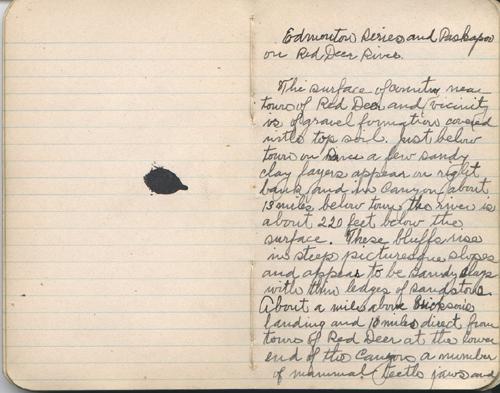 Edmonton Series and Paskapoo
on Red Deer River.
The surface of country near
town of Red Deer and vicinity
is of gravel formation covered
with top soil. Just below
town on River a few sandy
clay layers appear on right
bank and in Canyon about
13 miles below town the river is
about 220 feet below the
surface. These bluffs rise
in steep picturesque slopes
and appear to be sandy clays
with thin ledges of sandstone.
About a mile above Erickson's
landing and 10 miles direct from
town of Red Deer at the lower
end of the Canyon a number
of mammal (teeth jaws and